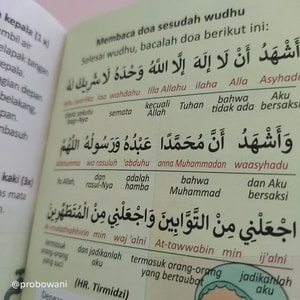 kepala (1 x)
mbil air
elapak tangan
kepala,
gian depan
belakang,
pan
mbasuh
kaki (3x)
as mata
Membaca doa sesudah wudhu
Selesai wudhu, bacalah doa berikut ini:
أَشْهَدُ أَنْ لَا إِلَهَ إِلَّا اللَّهُ وَحْدَهُ لَا شَرِيْكَ لَهُ
lahu wahdahu illa Allahu ilaha Alla Asyhadu
semata kecuali Tuhan bahwa Aku
bagi-Nya tidak ada bersaksi
وَأَشْهَدُ أَنَّ مُحَمَّدًا عَبْدُهُ وَرَسُوْلُهُ اللَّهُمَّ
Allahumma wa rasuluh 'abduhu anna Muhammadan waasyhadu
Ya Allah, dan adalah bahwa dan Aku
rasul-Nya hamba Muhammad bersaksi
اجْعَلْنِي مِنَ التَّوَّابِيْنَ وَاجْعَلْنِي مِنَ الْمُتَطَهِّرِيْنَ
Al-mutathahhirin min waj'alni At-tawwabin min ij'alni
termasuk dan jadikanlah termasuk orang-orang jadikanlah
orang-orang aku yang bertaubat aku
yang suci
(HR. Tirmidzi)
@probowani